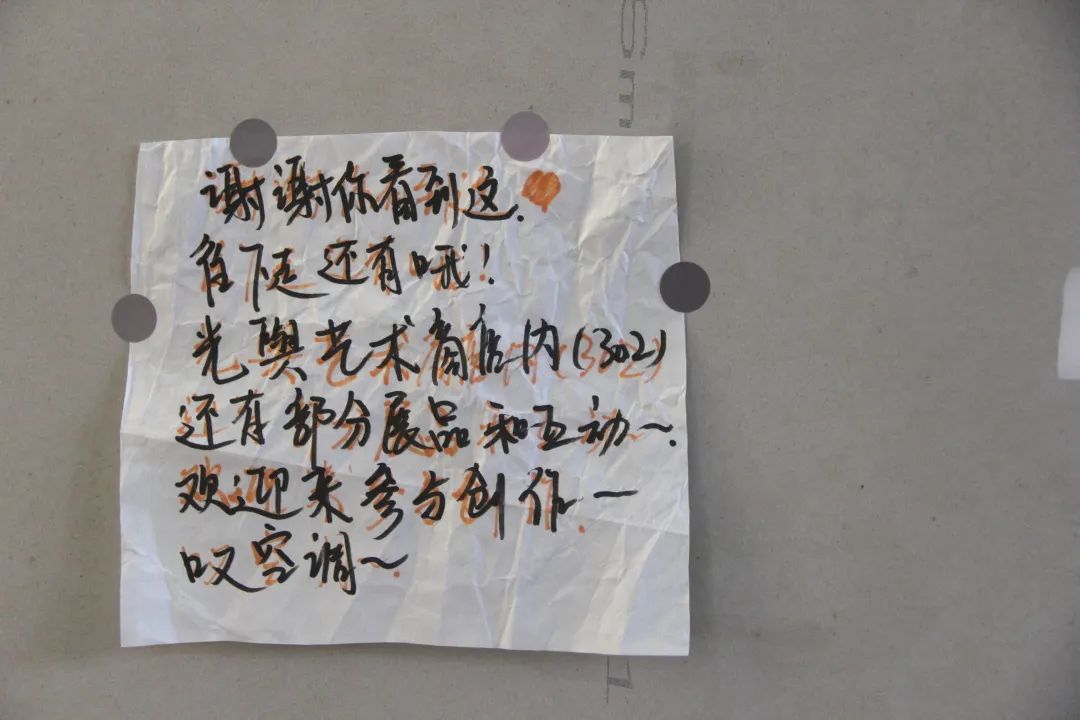 谢谢你看到这.
往下走还有哦!
光舆艺术商店内(302)
还有部分展品和互动~.
欢迎来参与创作~
叹空调~